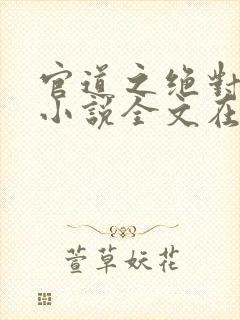 官道之绝對
小說全文在
萱草妖花